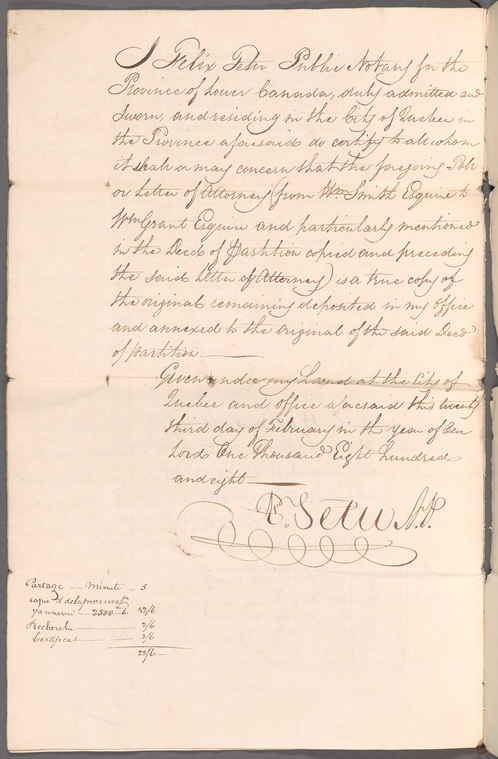 I Felix Tetu Public Notary for the
Province of Lower Canada, duly admitted and
Sworn, and residing in the City of Quebec in
the Province aforesaid do certify to all whom
it shall or may concern that the foregoing Poll
or Letter of Attorney (from Wm Smith Esquire to
Wm Grant Esquire and particularly mentioned
in the Deed of Partition copied and preceeding
the said Letter of Attorney) is a true copy of
the original remaining deposited in my Office
and annexed to the original of the said Deed
of partition.
Given under my hand at the City of
Quebec and Office aforesaid this twenty
third day of February in the year of Our
Lord One Thousand Eight hundred
and eight
F. Tetu N.P.
Partage minute 5
copie & de la procuraon
y annexée 2500 12/6
Recherche 2/6
Certificat 2/6
22/6